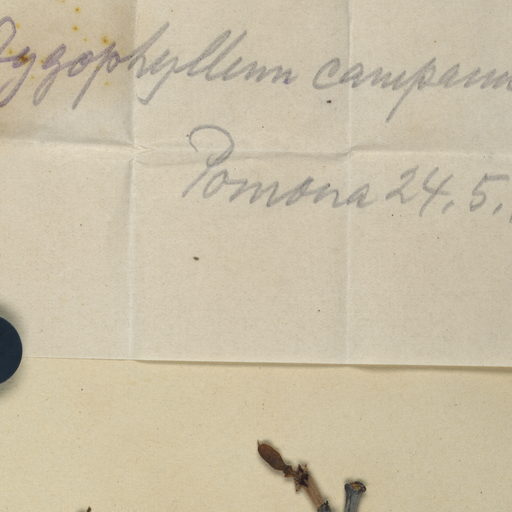 Zygophyllum campanu
Pomona 24.5.